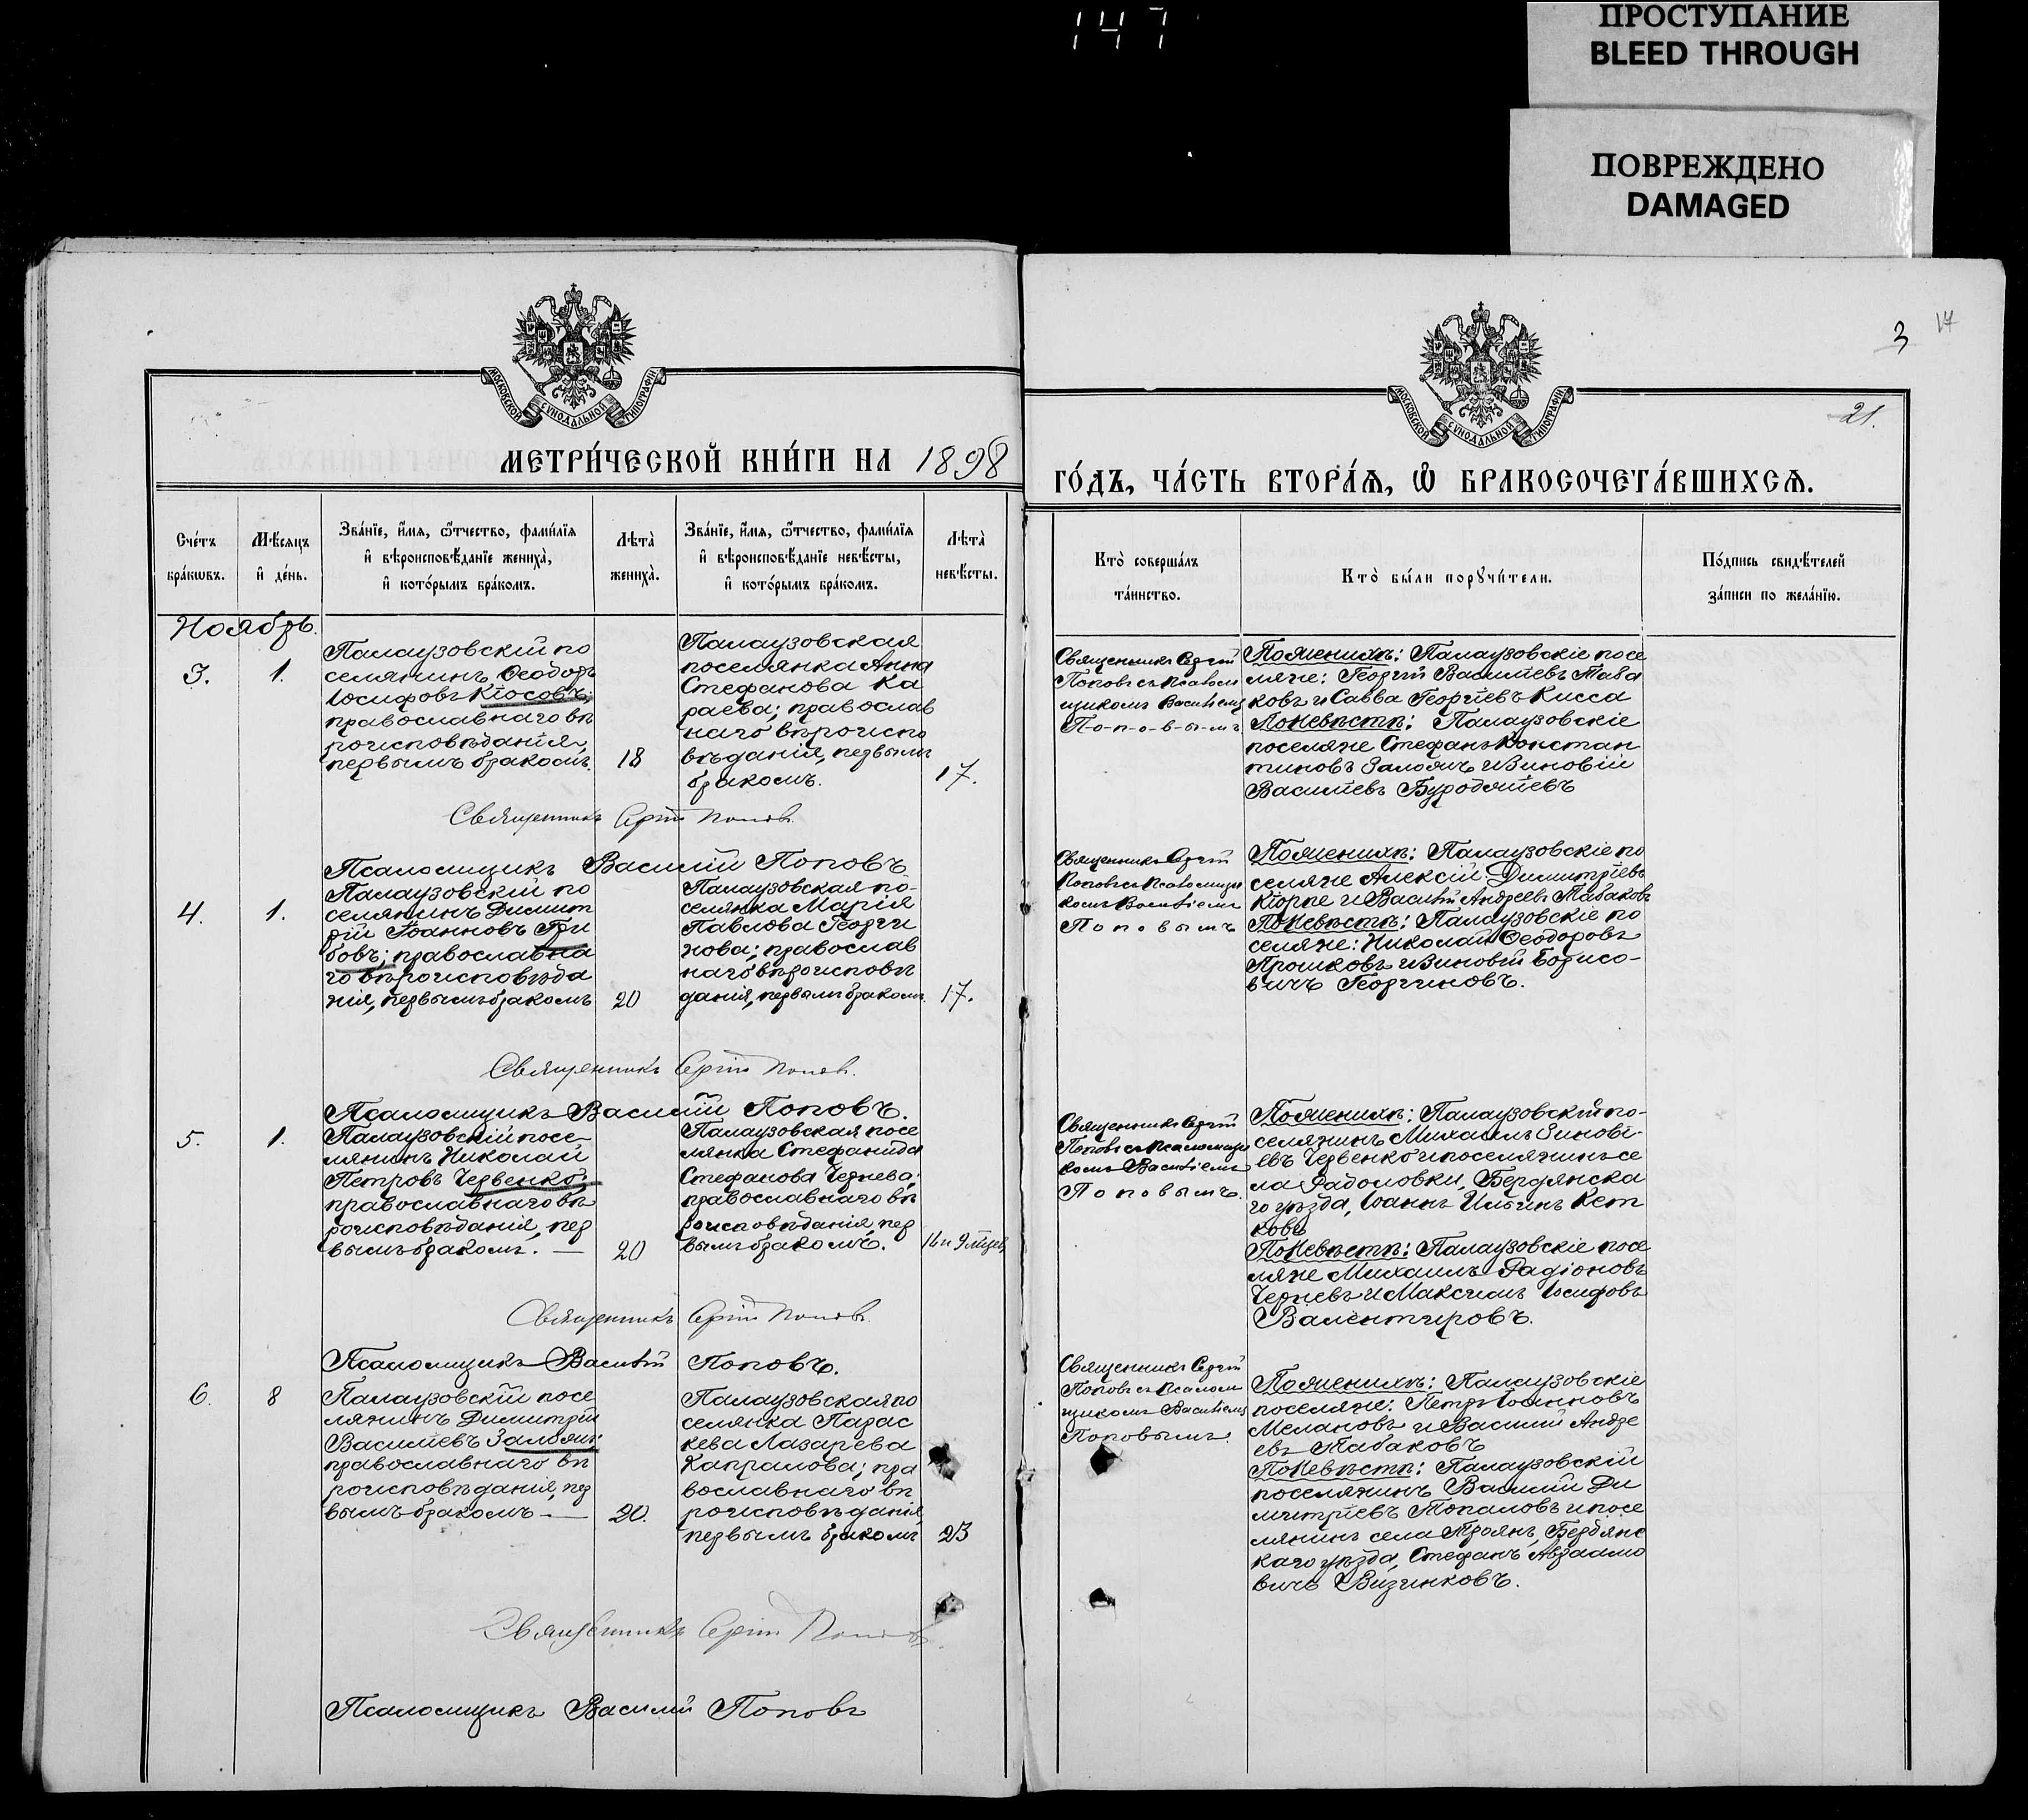 147
ПРОСТУПАНИЕ
BLEED THROUGH
ПОВРЕЖДЕНО
DAMAGED
3 17
21.
МОСКОВСКОЙ СѴНОДАЛЬНОЙ ТИПОГРАФІИ
МОСКОВСКОЙ СѴНОДАЛЬНОЙ ТИПОГРАФІИ
МЕТРИ́ЧЕСКОЙ КНИ́ГИ НА 1898
ГО́ДЪ, ЧА́СТЬ ВТОРА́Я, Ѡ БРАКОСОЧЕТА́ВШИХСЯ.
Сче́тъ
бра́кѡвъ.
Мѣ́сяцъ
и҆ де́нь.
Зва́нїе, и҆́мя, ѻ҆́тчество, фами́лїя
и҆ вѣроисповѣ́данїе жениха̀,
и҆ кото́рымъ бра́комъ.
Лѣта̀
жениха̀.
Зва́нїе, и҆́мя, ѻ҆́тчество, фами́лїя
и҆ вѣроисповѣ́данїе невѣ́сты,
и҆ кото́рымъ бра́комъ.
Лѣта̀
невѣ́сты.
Кто̀ соверша́лъ
та́инство.
Кто̀ бы́ли порꙋчи́тели.
По́дпись свидѣ́телей
за́писи по жела́нїю.
Ноябрь.
3.
1.
Палаузовскій по
селянинъ Ѳеодоръ
Іосифовъ Кіосовъ;
православнаго вѣ
роисповѣданія,
первымъ бракомъ.
18
Палаузовская
поселянка Анна
Стефанова Ка
раева; православ
наго вѣроиспо
вѣданія, первымъ
бракомъ.
17.
Священникъ Сергій
Поповъ съ Псаломщ
щикомъ Василіемъ
П-о-п-о-в-ы-мъ
По женихѣ: Палаузовскіе посе
ляне: Георгій Васильевъ Таба
ковъ и Савва Георгіевъ Кисса
По невѣстѣ: Палаузовскіе
поселяне Стефанъ Констан
тиновъ Залоянъ и Зиновій
Васильевъ Буродяіевъ
Священникъ Сергій Поповъ.
Псаломщикъ Василій Поповъ
4.
1.
Палаузовскій по
селянинъ Димит
рій Іоанновъ Гри
бовъ; православна
го вѣроисповѣда
нія, первымъ бракомъ
20
Палаузовская по-
селянка Марія
Павлова Георги
нова; православ
наго вѣроисповѣ
данія, первымъ бракомъ.
17.
Священникъ Сергій
Поповъ съ Псаломщи
комъ Василіемъ
П о п о в ы м ъ
По женихѣ: Палаузовскіе по
селяне Алексій Димитріевъ
Кіорпе и Василій Андреевъ Табаковъ
По невѣстѣ: Палаузовскіе по
селяне: Николай Ѳеодоровъ
Прошковъ и Зиновій Борисо-
вичъ Георгиновъ.
Священникъ Сергій Поповъ.
Псаломщикъ Василій Поповъ.
5.
1.
Палаузовскій посе-
лянинъ Николай
Петровъ Червенко;
православнаго вѣ
роисповѣданія, пер
вымъ бракомъ. —
20
Палаузовская посе
лянка Стефанида
Стефанова Чернева;
православнаго вѣ
роисповѣданія, пер
вымъ бракомъ.
16 и 9 мѣсяц.
Священникъ Сергій
Поповъ съ Псаломщи
комъ Василіемъ
П о п о в ы м ъ.
По женихѣ: Палаузовскій по-
селянинъ Михаилъ Зиновь-
евъ Червенко и поселянинъ се
ла Радоловки, Бердянска
го уѣзда, Іоаннъ Ильинъ Кет
ковъ
По невѣстѣ: Палаузовскіе посе
ляне Михаилъ Радіоновъ
Черневъ и Максимъ Іосифовъ
Валентировъ.
Священникъ Сергій Поповъ.
Псаломщикъ Василій Поповъ.
6.
8
Палаузовскій посе
лянинъ Димитрій
Васильевъ Залоянъ
православнаго вѣ
роисповѣданія, пер
вымъ бракомъ —
20.
Палаузовская по
селянка Парас
кева Лазарева
Капралова; пра
вославнаго вѣ
роисповѣданія,
первымъ бракомъ
23
Священникъ Сергій
Поповъ съ Псалом
щикомъ Василіемъ
Поповымъ.
По женихѣ: Палаузовскіе
поселяне: Петръ Іоанновъ
Мелановъ и Василій Андре
евъ Табаковъ
По невѣстѣ: Палаузовскій
поселянинъ Василій Ди
митріевъ Топаловъ и посе
лянинъ села Троянъ, Бердянс
каго уѣзда, Стефанъ Авраамо
вичъ Визинковъ.
Священникъ Сергій Поповъ.
Псаломщикъ Василій Поповъ